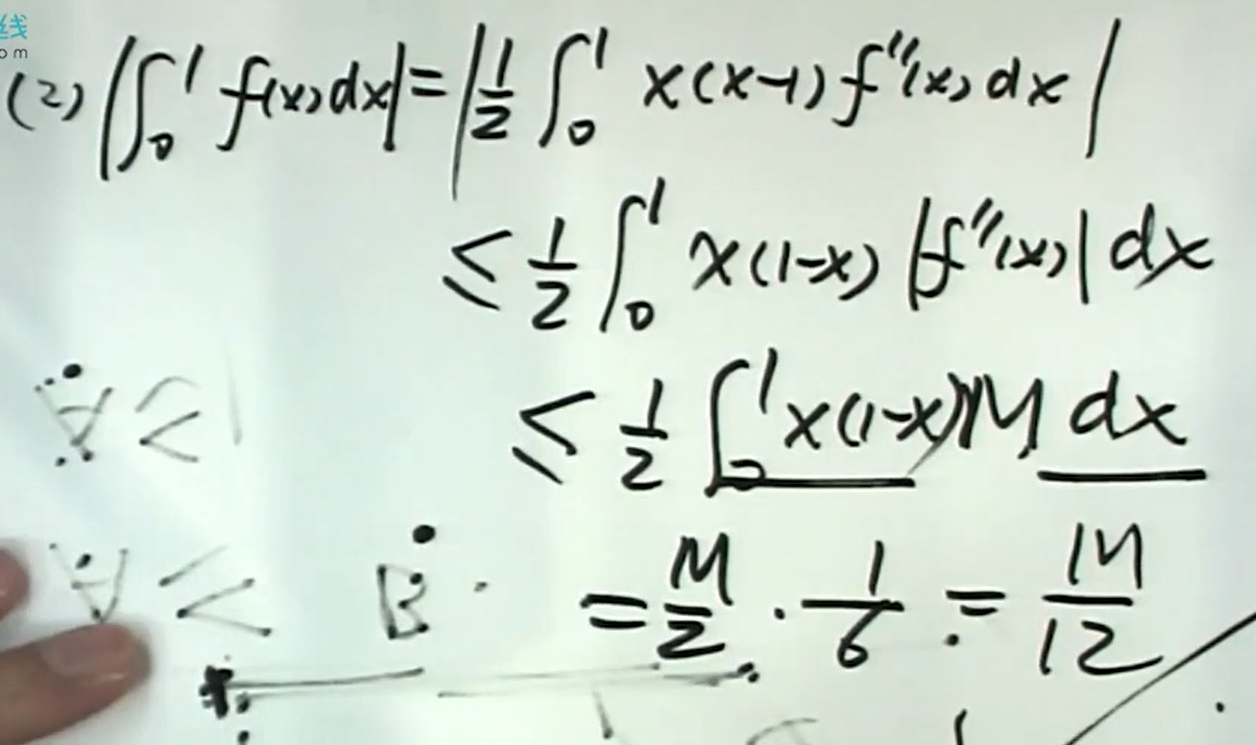 线
om
(2) |∫₀¹ f(x)dx| = |1/2 ∫₀¹ x(x-1) f''(x) dx|
≤ 1/2 ∫₀¹ x(1-x) |f''(x)| dx
≤ 1/2 ∫₀¹ x(1-x) M dx
= M/2 · 1/6 = M/12